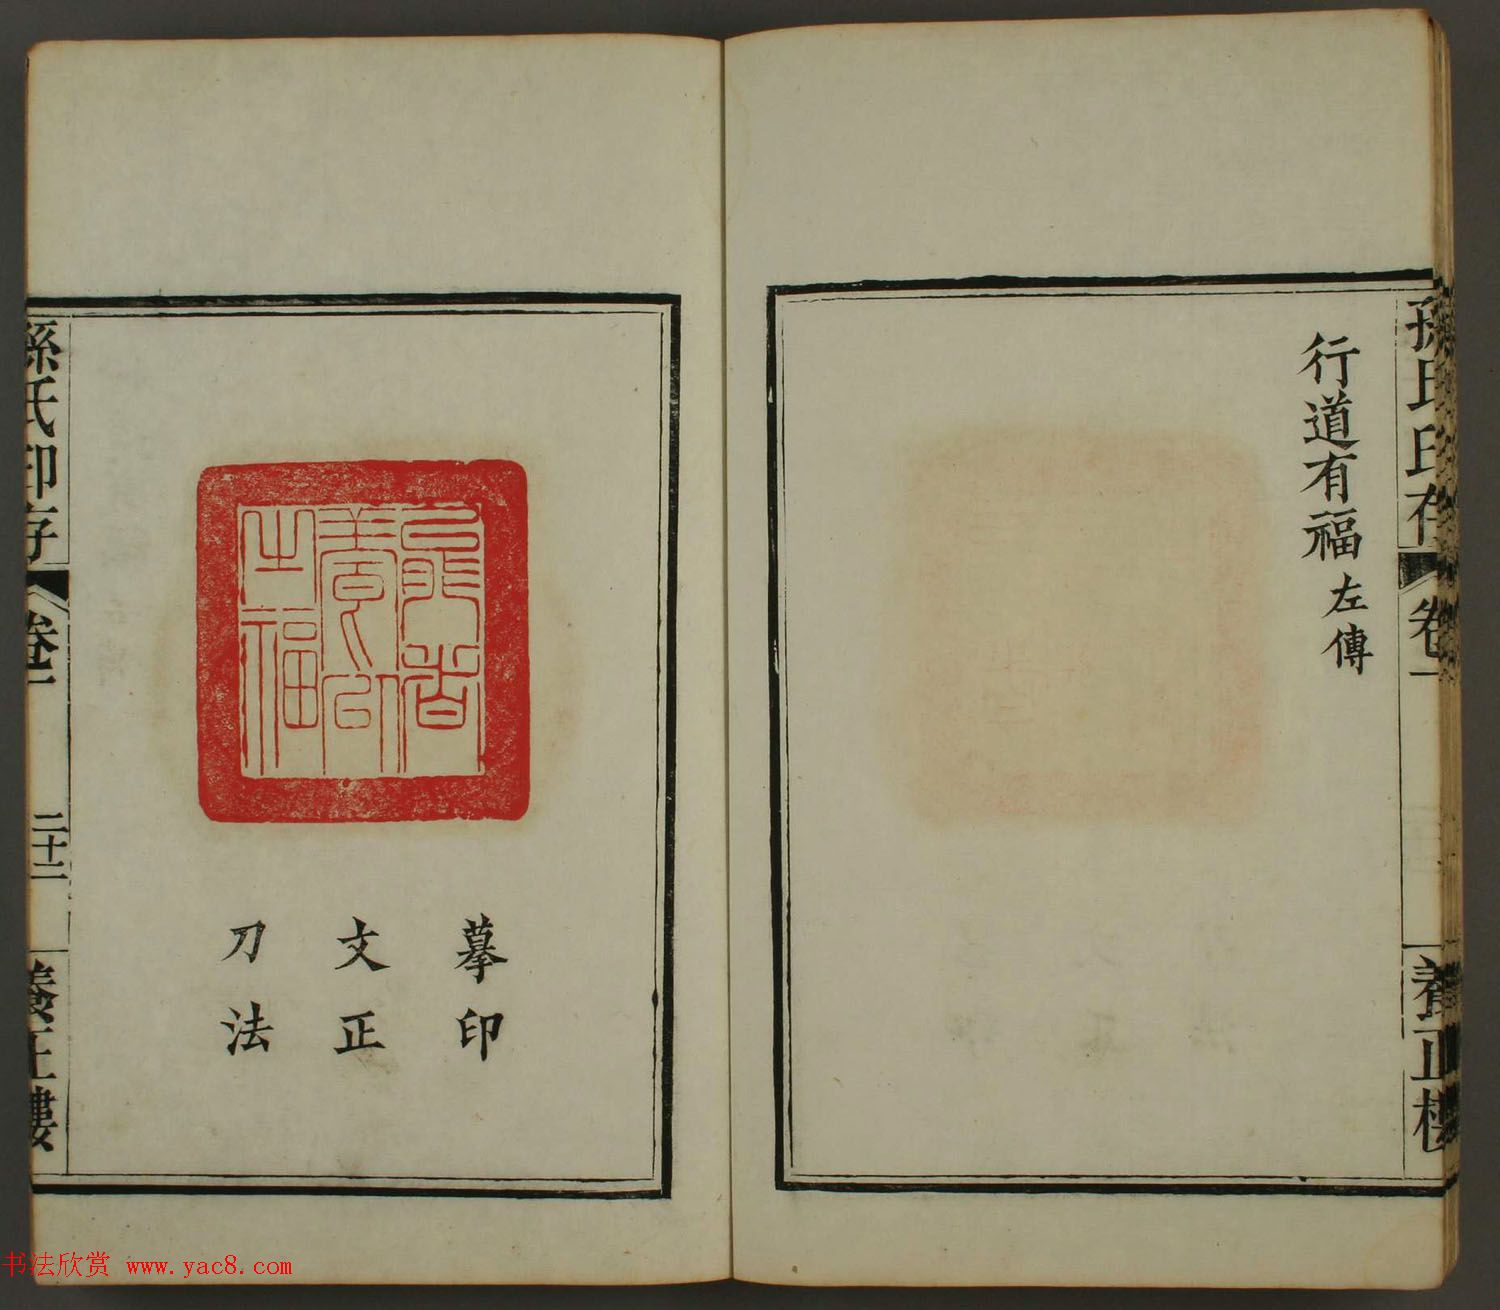 孫氏印存 卷一 養正樓
行道有福 左傳
能者
養以
之福
摹印
文正
刀法
孫氏印存 卷一 二十二 養正樓
书法欣赏 www.yac8.com